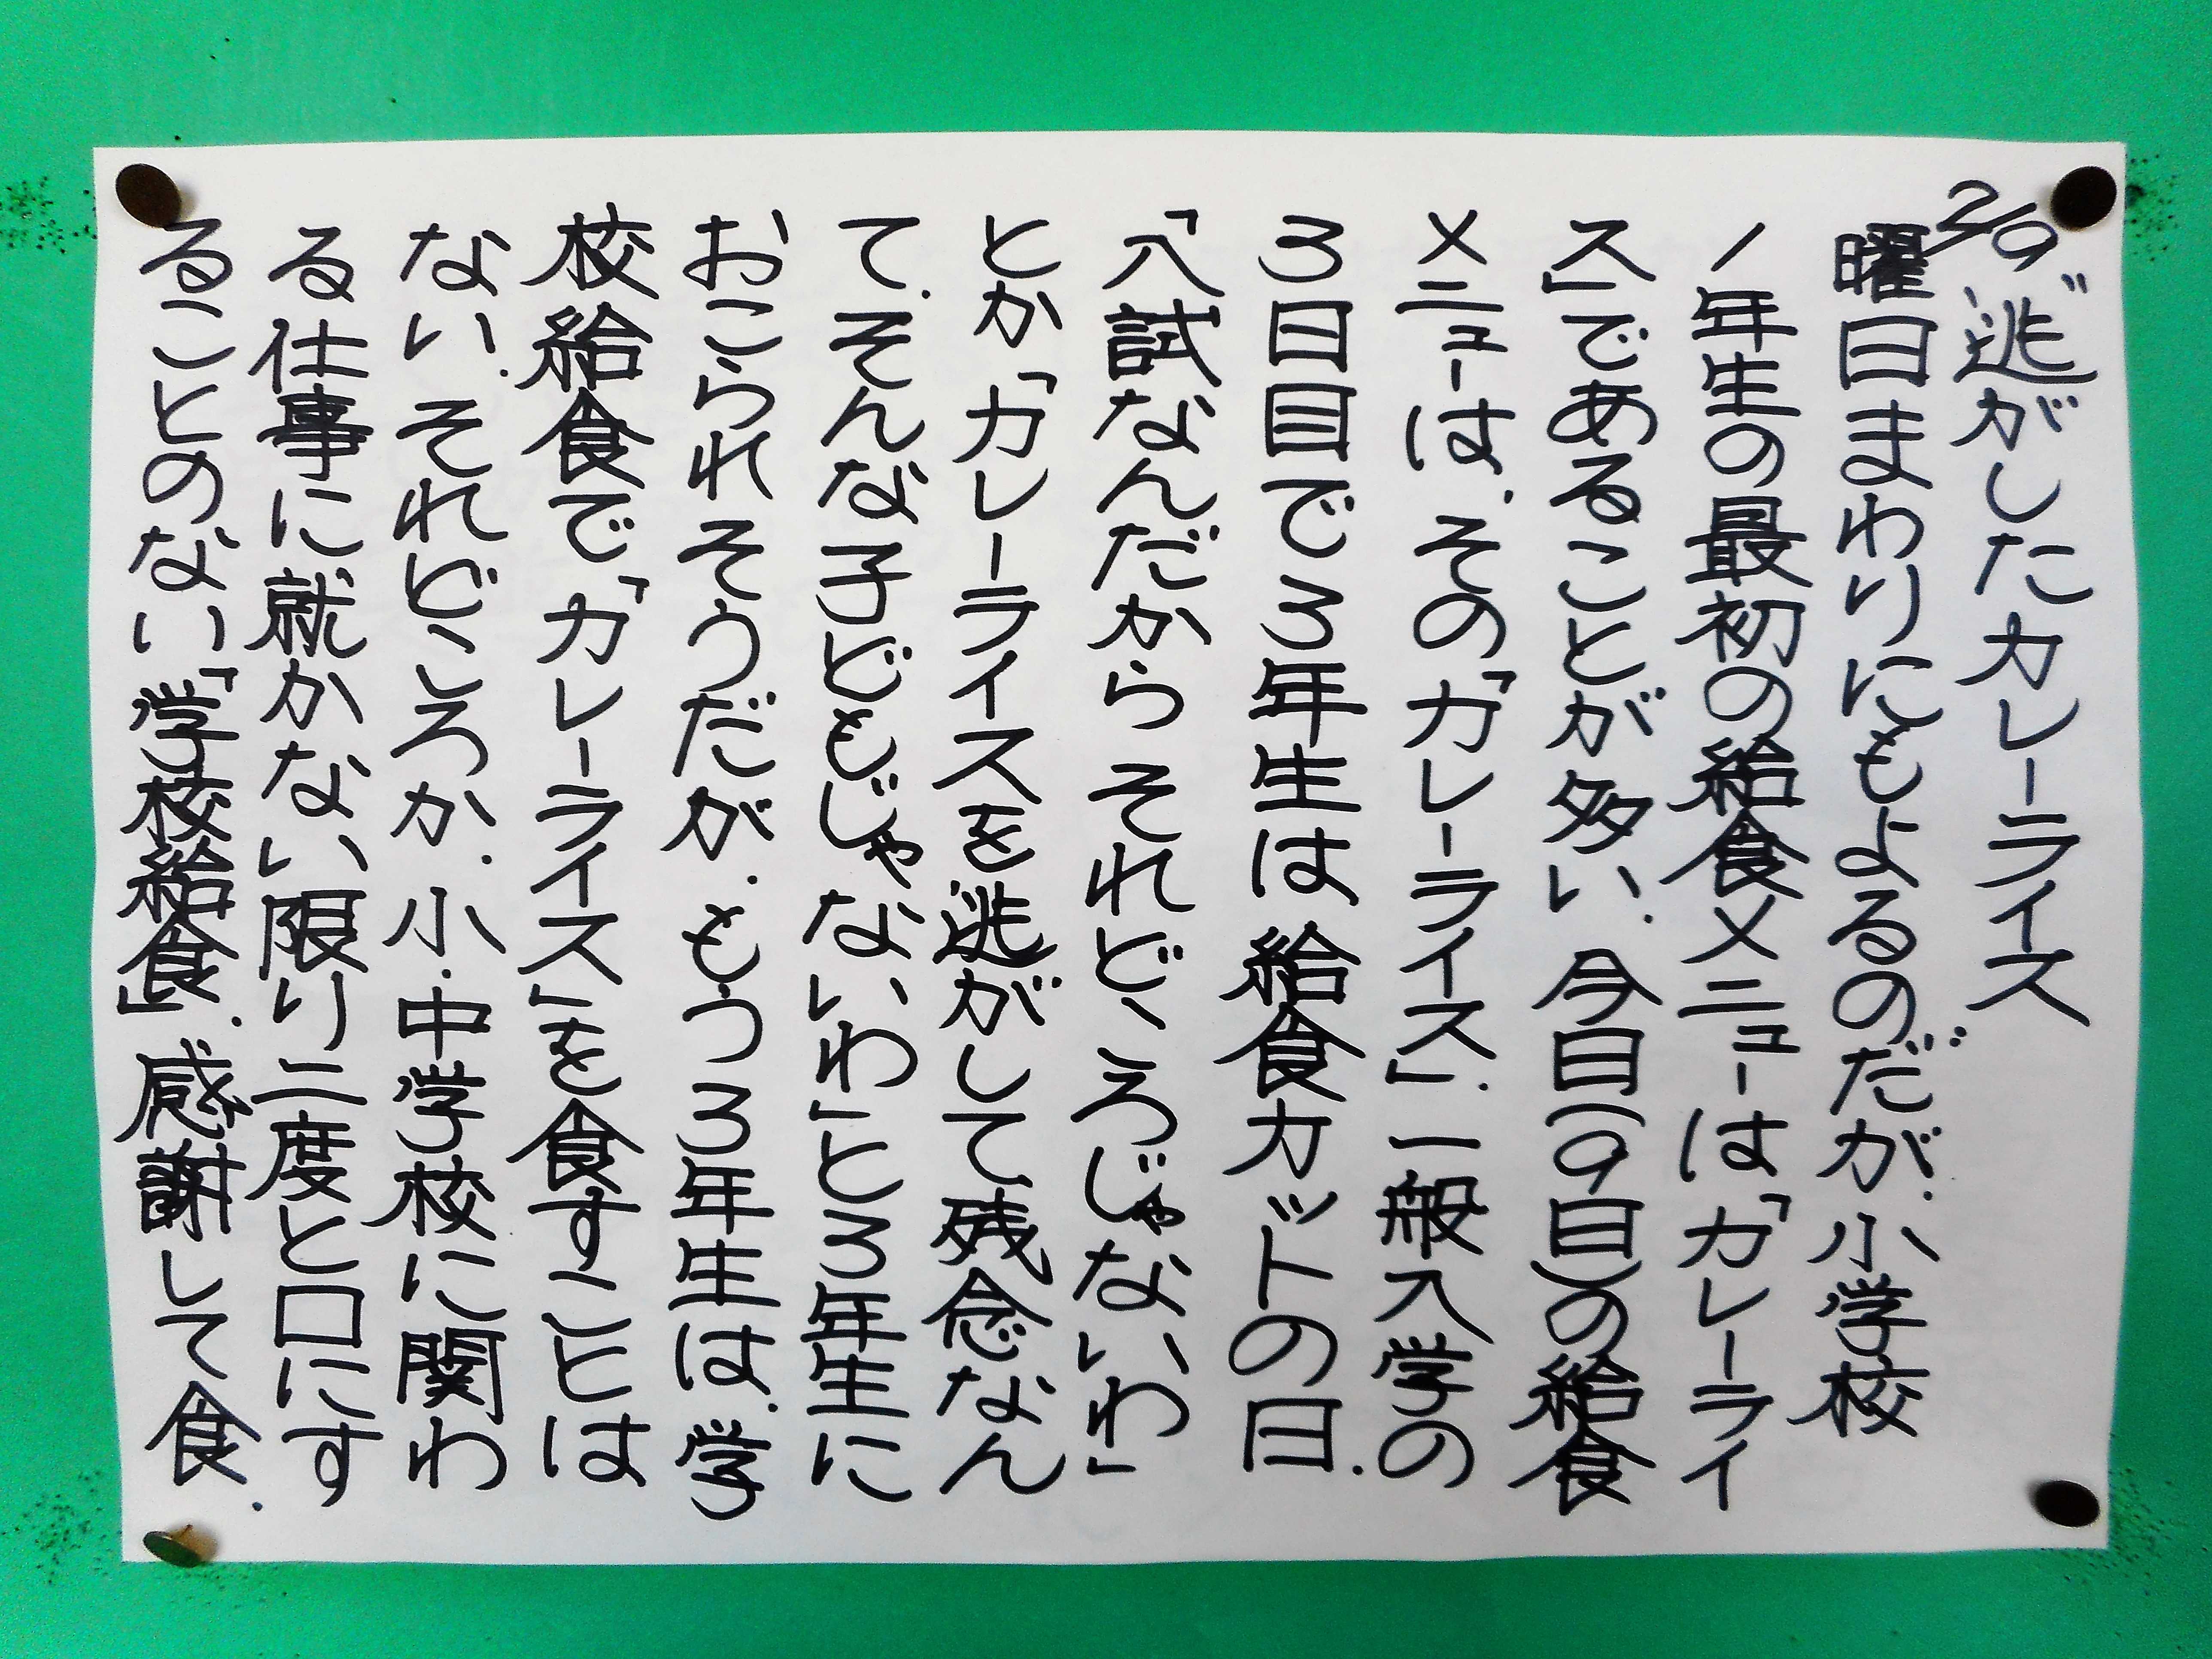 2/9 〝逃がしたカレーライス〟
曜日まわりにもよるのだが、小学校
1年生の最初の給食メニューは「カレーライ
ス」であることが多い。今日(9日)の給食
メニューは、その「カレーライス」。一般入学の
3日目で3年生は給食カットの日。
「入試なんだからそれどころじゃないわ」
とか「カレーライスを逃がして残念なん
て、そんな子どもじゃないわ」と3年生に
おこられそうだが、もう3年生は、学
校給食で「カレーライス」を食すことは
ない。それどころか、小・中学校に関わ
る仕事に就かない限り二度と口にす
ることのない「学校給食」。感謝して食。